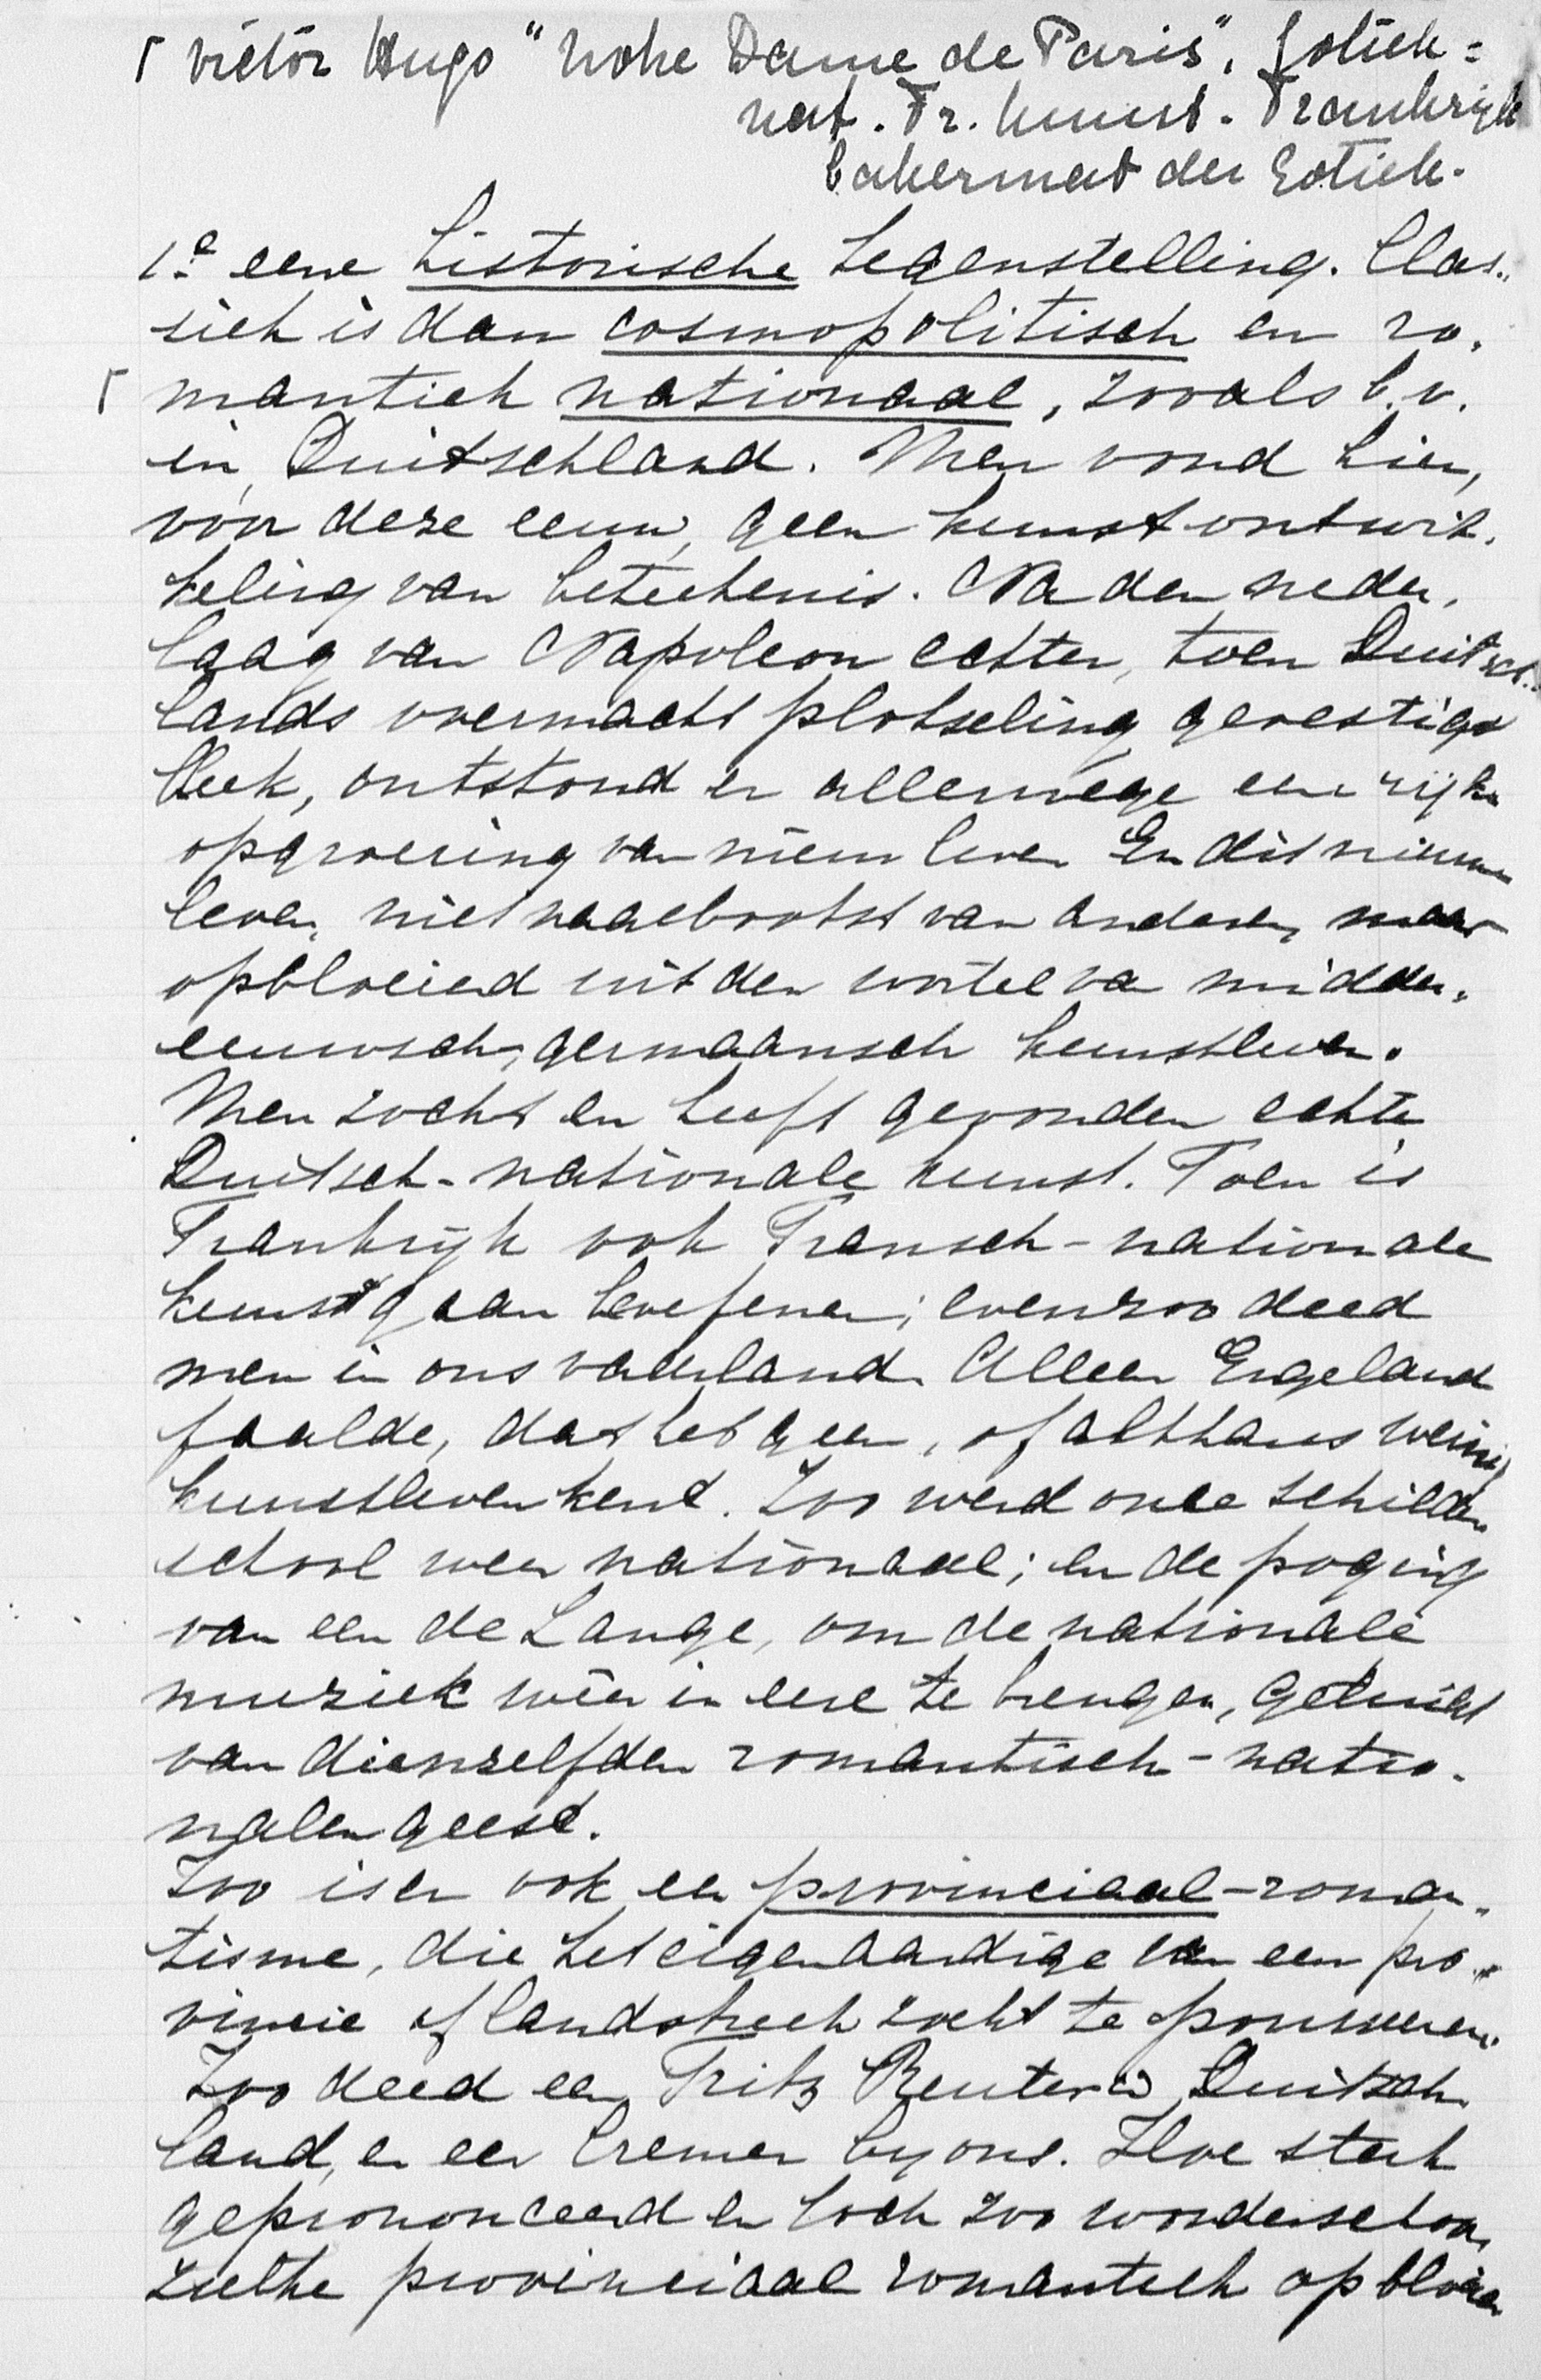 Γ Victor Hugo "Notre Dame de Paris". Gotiek =
nat. Fr. kunst. Frankrijk
bakermat der Gotiek.
1e eene historische tegenstelling. Clas-
siek is dan cosmopolitisch en ro-
Γ mantiek nationaal, zooals b.v.
in Duitschland. Men vond hier,
vóór deze eeuw, geen kunstontwik-
keling van beteekenis. Na den neder-
laag van Napoleon echter, toen Duitsch-
lands overmacht plotseling gevestigd
bleek, ontstond er allerwege een rijke
opgroeiing van nieuw leven En dit nieuwe
leven, niet nagebootst van anderen, maar
opbloeiend uit den wortel van midden-
eeuwsch-germaansch kunstleven.
Men zocht en heeft gevonden echte
Duitsch-nationale kunst. Toen is
Frankrijk ook Fransch-nationale
kunst gaan beoefenen; evenzoo deed
men in ons vaderland. Alleen Engeland
faalde, dat het geen, of althans weinig
kunstleven kent. Zoo werd onze schilder-
school weer nationaal; en de poging
van een de Lange, om de nationale
muziek wêer in eere te brengen, getuigt
van dienzelfden romantisch-natio-
nalen geest.
Zoo is er ook een provinciaal-roman-
tisme, die het eigenaardige van een pro-
vincie of landstreek zocht te
Zoo deed een Fritz Reuter in Duitsch-
land, en een Cremer bij ons. Hoe sterk
geprononceerd en toch zoo wonderschoon
zulke provinciaal romantiek opbloeien